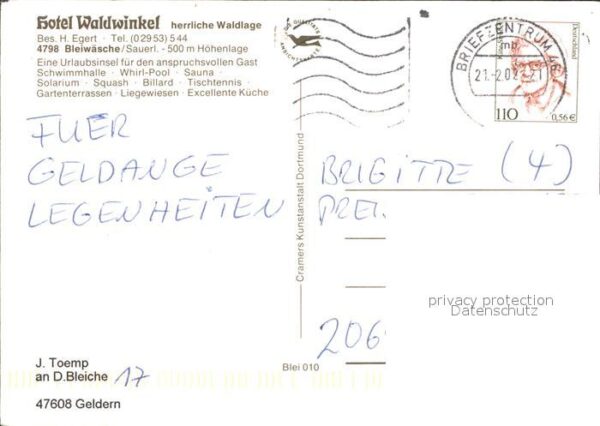 Hotel Waldwinkel herrliche Waldlage
Bes. H. Egert · Tel. (02953) 544
4798 Bleiwäsche/Sauerl. - 500 m Höhenlage
Eine Urlaubsinsel für den anspruchsvollen Gast
Schwimmhalle · Whirl-Pool · Sauna
Solarium · Squash · Billard · Tischtennis
Gartenterrassen · Liegewiesen · Excellente Küche
BRIEFZENTRUM 46
mb
21.-2.02-21
Deutschland
110
0,56 €
FUER
GELDANGE
LEGENHEITEN
Cramers Kunstanstalt Dortmund
BRIGITTE (4)
PREI
privacy protection
Datenschutz
206
Blei 010
J. Toemp
an D.Bleiche 17
47608 Geldern